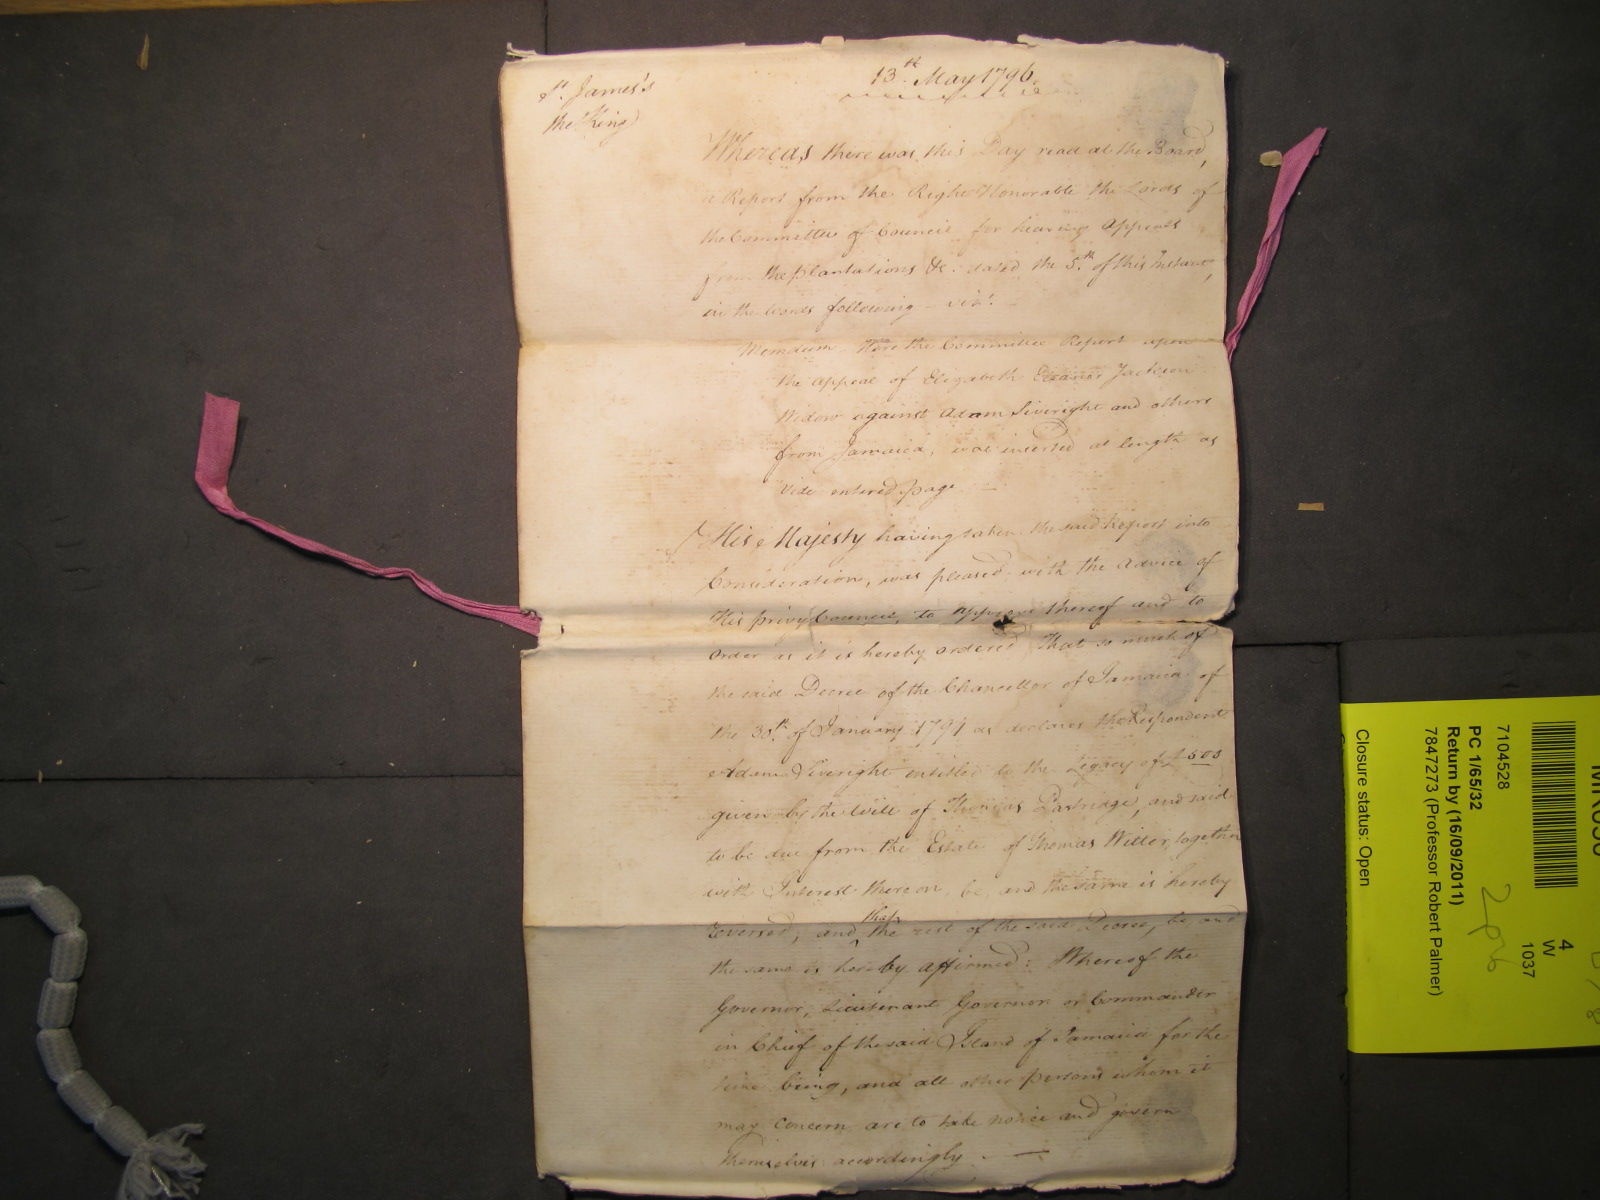 St. James's
the King
13th May 1796.
Whereas there was this Day read at the Board,
a Report from the Right Honorable the Lords of
the Committee of Council for hearing Appeals
from the plantations &c. dated the 5th of this Instant,
in the words following - vizt. -
Memdum Here the Committee Report upon
the appeal of Elizabeth Eleanor Jackson
Widow against Adam Siveright and others
from Jamaica, was inserted at length as
Vide entered page -
His Majesty having taken the said Report into
Consideration, was pleased with the Advice of
His privy Council, to approve thereof and to
Order as it is hereby ordered, That so much of
the said Decree of the Chancellor of Jamaica of
the 30th of January 1791 as declares the Respondent
Adam Siveright entitled to the Legacy of £500
given by the Will of Thomas Partridge, and said
to be due from the Estate of Thomas Witter, together
with Interest thereon, be, and the same is hereby
reversed; and that the rest of the said Decree, be and
the same is hereby affirmed: Whereof the
Governor, Lieutenant Governor or Commander
in Chief of the said Island of Jamaica for the
time being, and all other persons whom it
may concern are to take notice and govern
themselves accordingly. —
7104528
PC 1/65/32
Return by (16/09/2011)
7847273 (Professor Robert Palmer)
Closure status: Open
4
W
1037